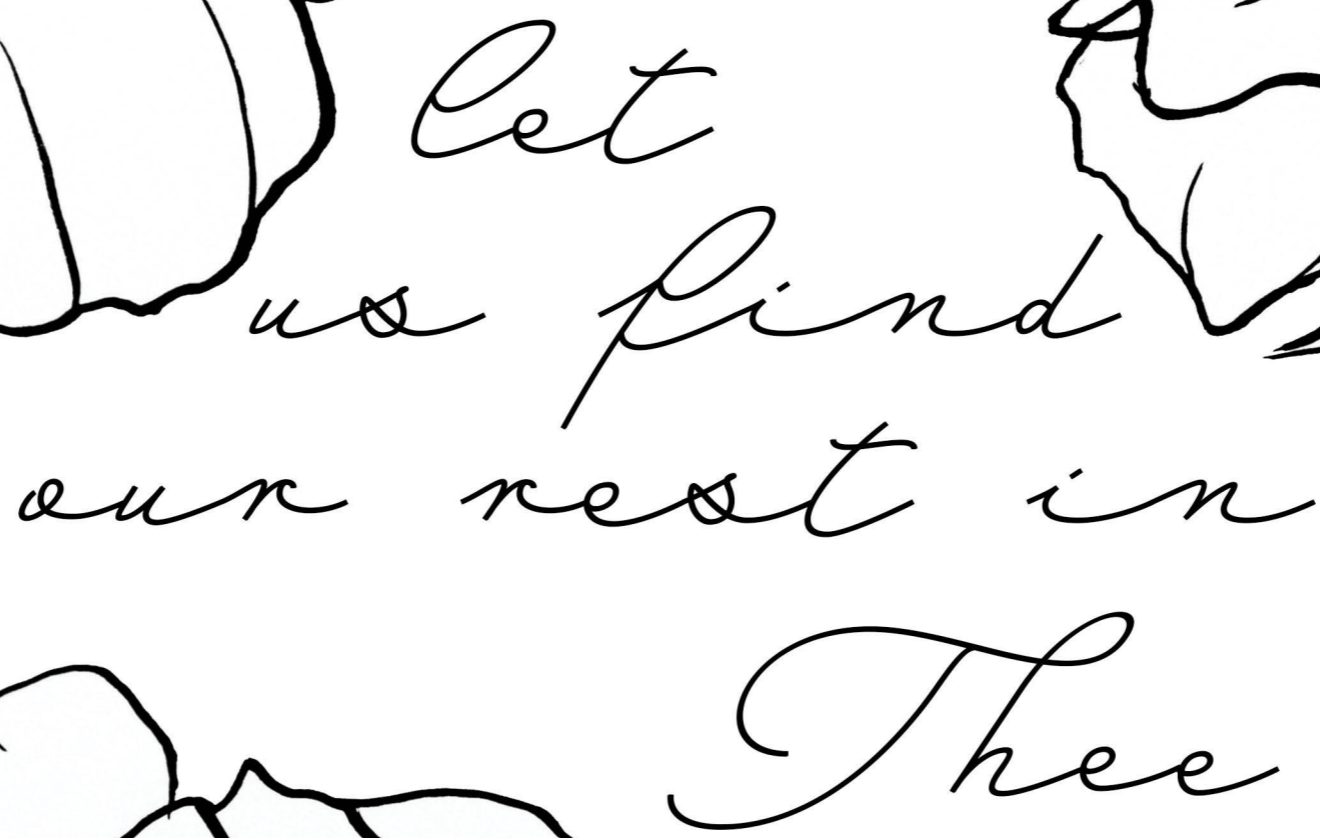 let
us find
our rest in
Thee